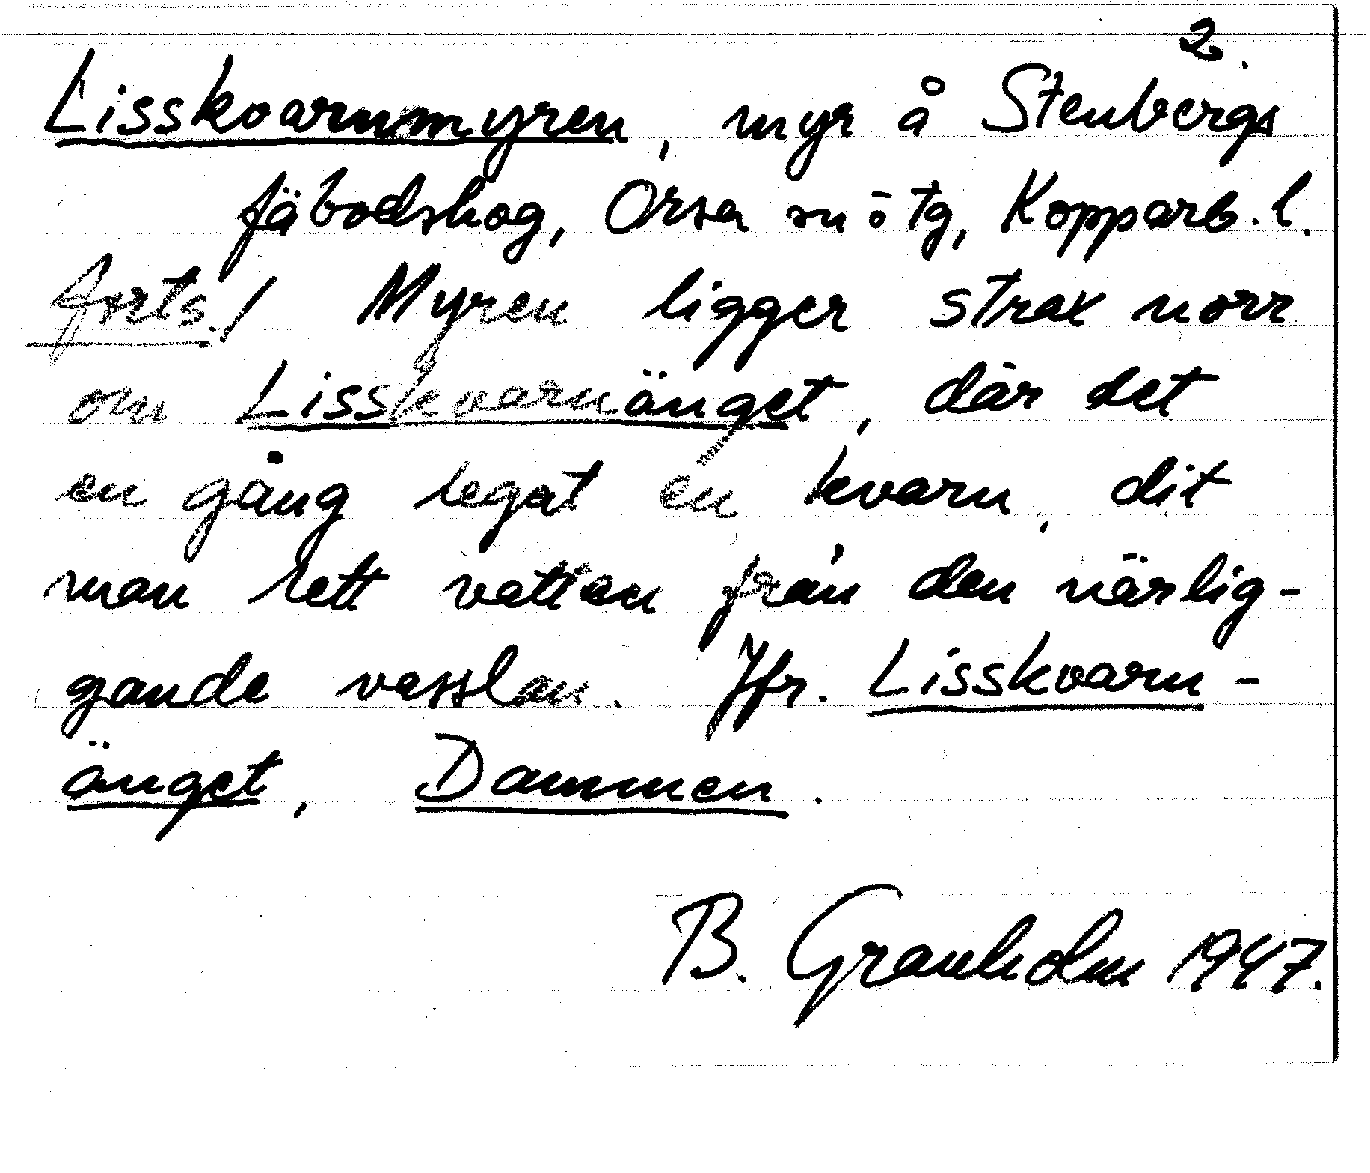 2.
Lisskvarnmyren, myr å Stenbergs
fäbodskog, Orsa sn ö tg, Kopparb. l.
Forts./ Myren ligger strax norr
om Lisskvarnänget, där det
en gång legat en kvarn, dit
man lett vatten från den närlig-
gande vasslan. Jfr. Lisskvarn-
änget, Dammen.
B. Granholm 1947.